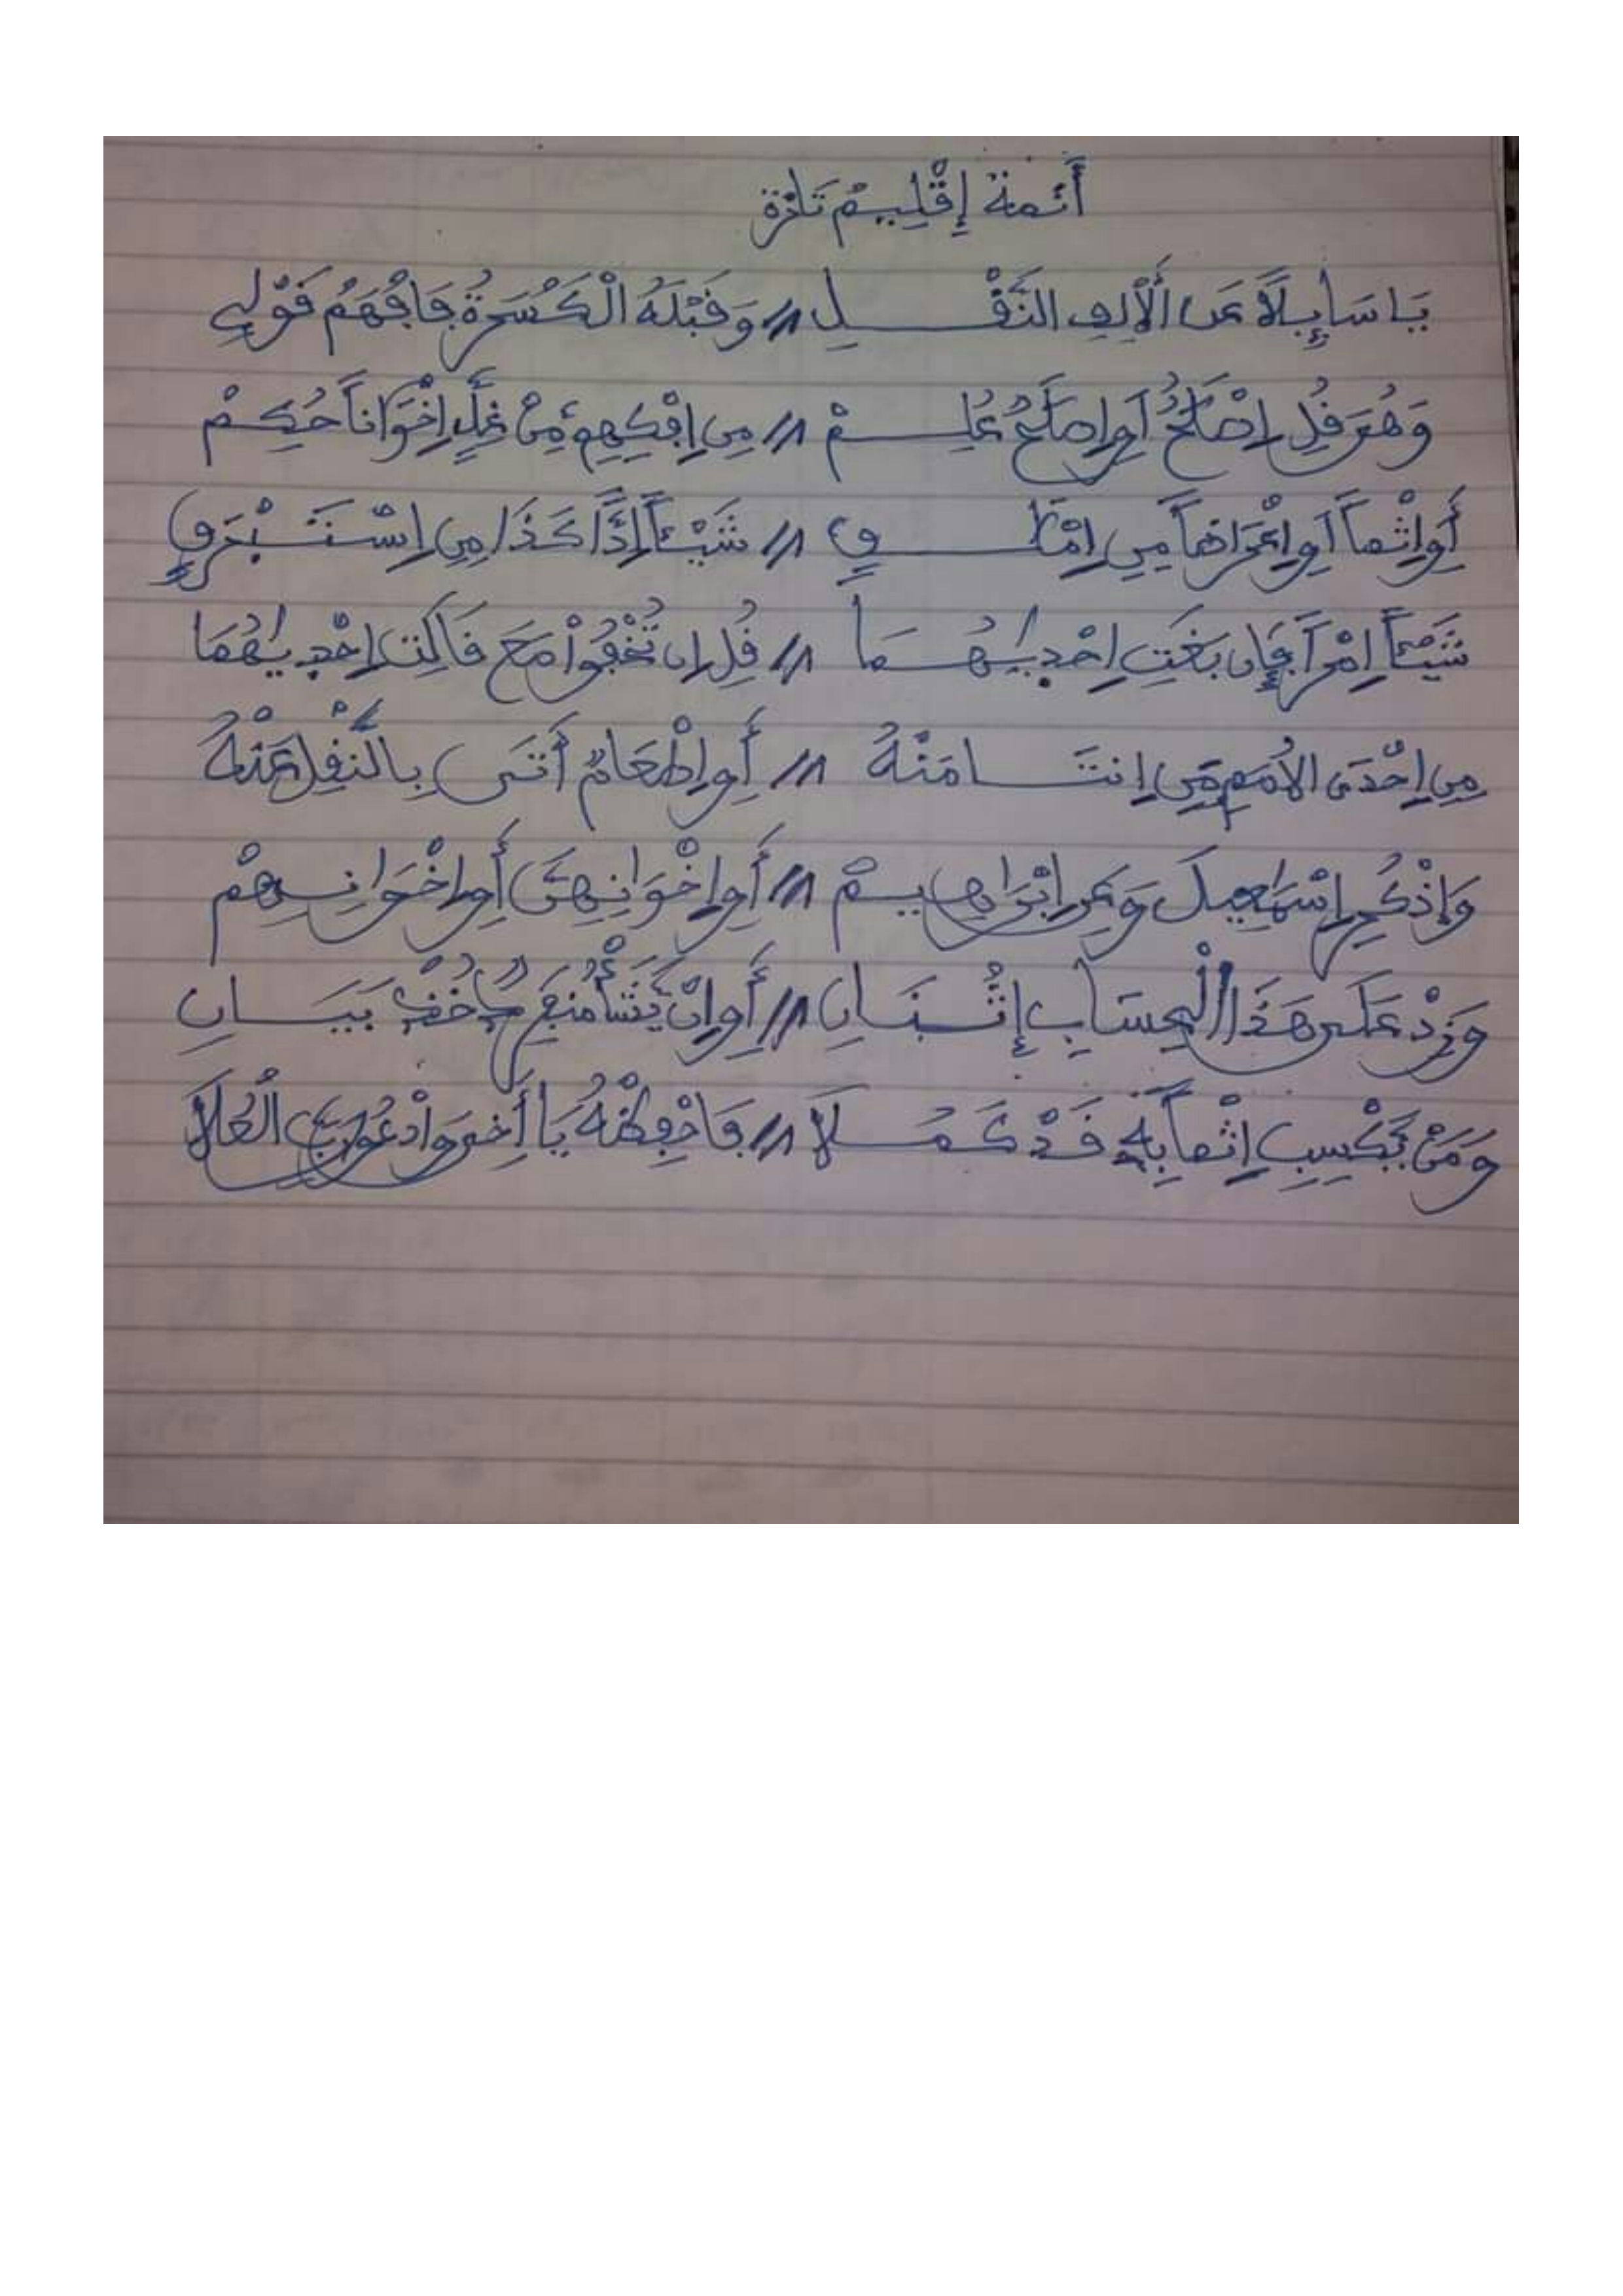 أئمة إقليم تازة
يَا سَايِلاً عَنِ الْألِفِ النَّقْلِ // وَقَبْلَهُ الْكَسْرَةُ فَافْهَمْ قَوْلِي
وَهُوَ قُلِ اِصْلَحٌ اَوِ اصْلَحٌ عُلِمْ // مِنِ اِفْكِهِم مِّنْ غِلٍّ اِخْوَاناً حُكِمْ
أَوِ اِثْماً اَوِ اِعْرَاضاً مِنِ اِمْلَقٍ // شَيْئاً اِدّاً كَذَا مِنِ اِسْتَبْرَقٍ
شَيْئاً اِمْراً فَإِن بَغَتِ اِحْدِيٰهُمَا // قُلِ اِن تُخْفُواْ مَعَ قَالَتِ اِحْدِيٰهُمَا
مِنِ اِحْدَى الأُمَمِ مَنِ اِنتَامَنْهُ // أَوِ اِطْعَامٌ أَتَى بِالنَّقْلِ عَنْهُ
وَاذْكُرِ اِسْمَاعِيلَ وَعَنِ اِبْرَاهِيمْ // أَوِ اِخْوَانِهِنَّ أَوِ اِخْوَانِهِمْ
وَزِدْ عَلَى هَذَا الْحِسَابِ إِثْنَانِ // أَوِ اِنْ يَّشَأْ مَعَ خُذْ بَيَانِ
وَمَنْ يَّكْسِبِ اِثْماً بِهِ قَدْ كَمُلاَ // فَاحْفِظْهُ يَا أَخِي وَادْعُ رَبَّ الْعُلاَ